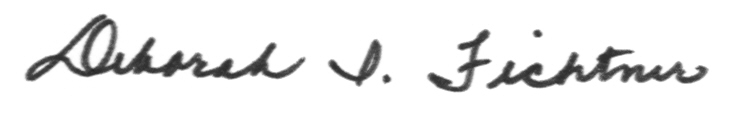 Deborah I. Fichtner